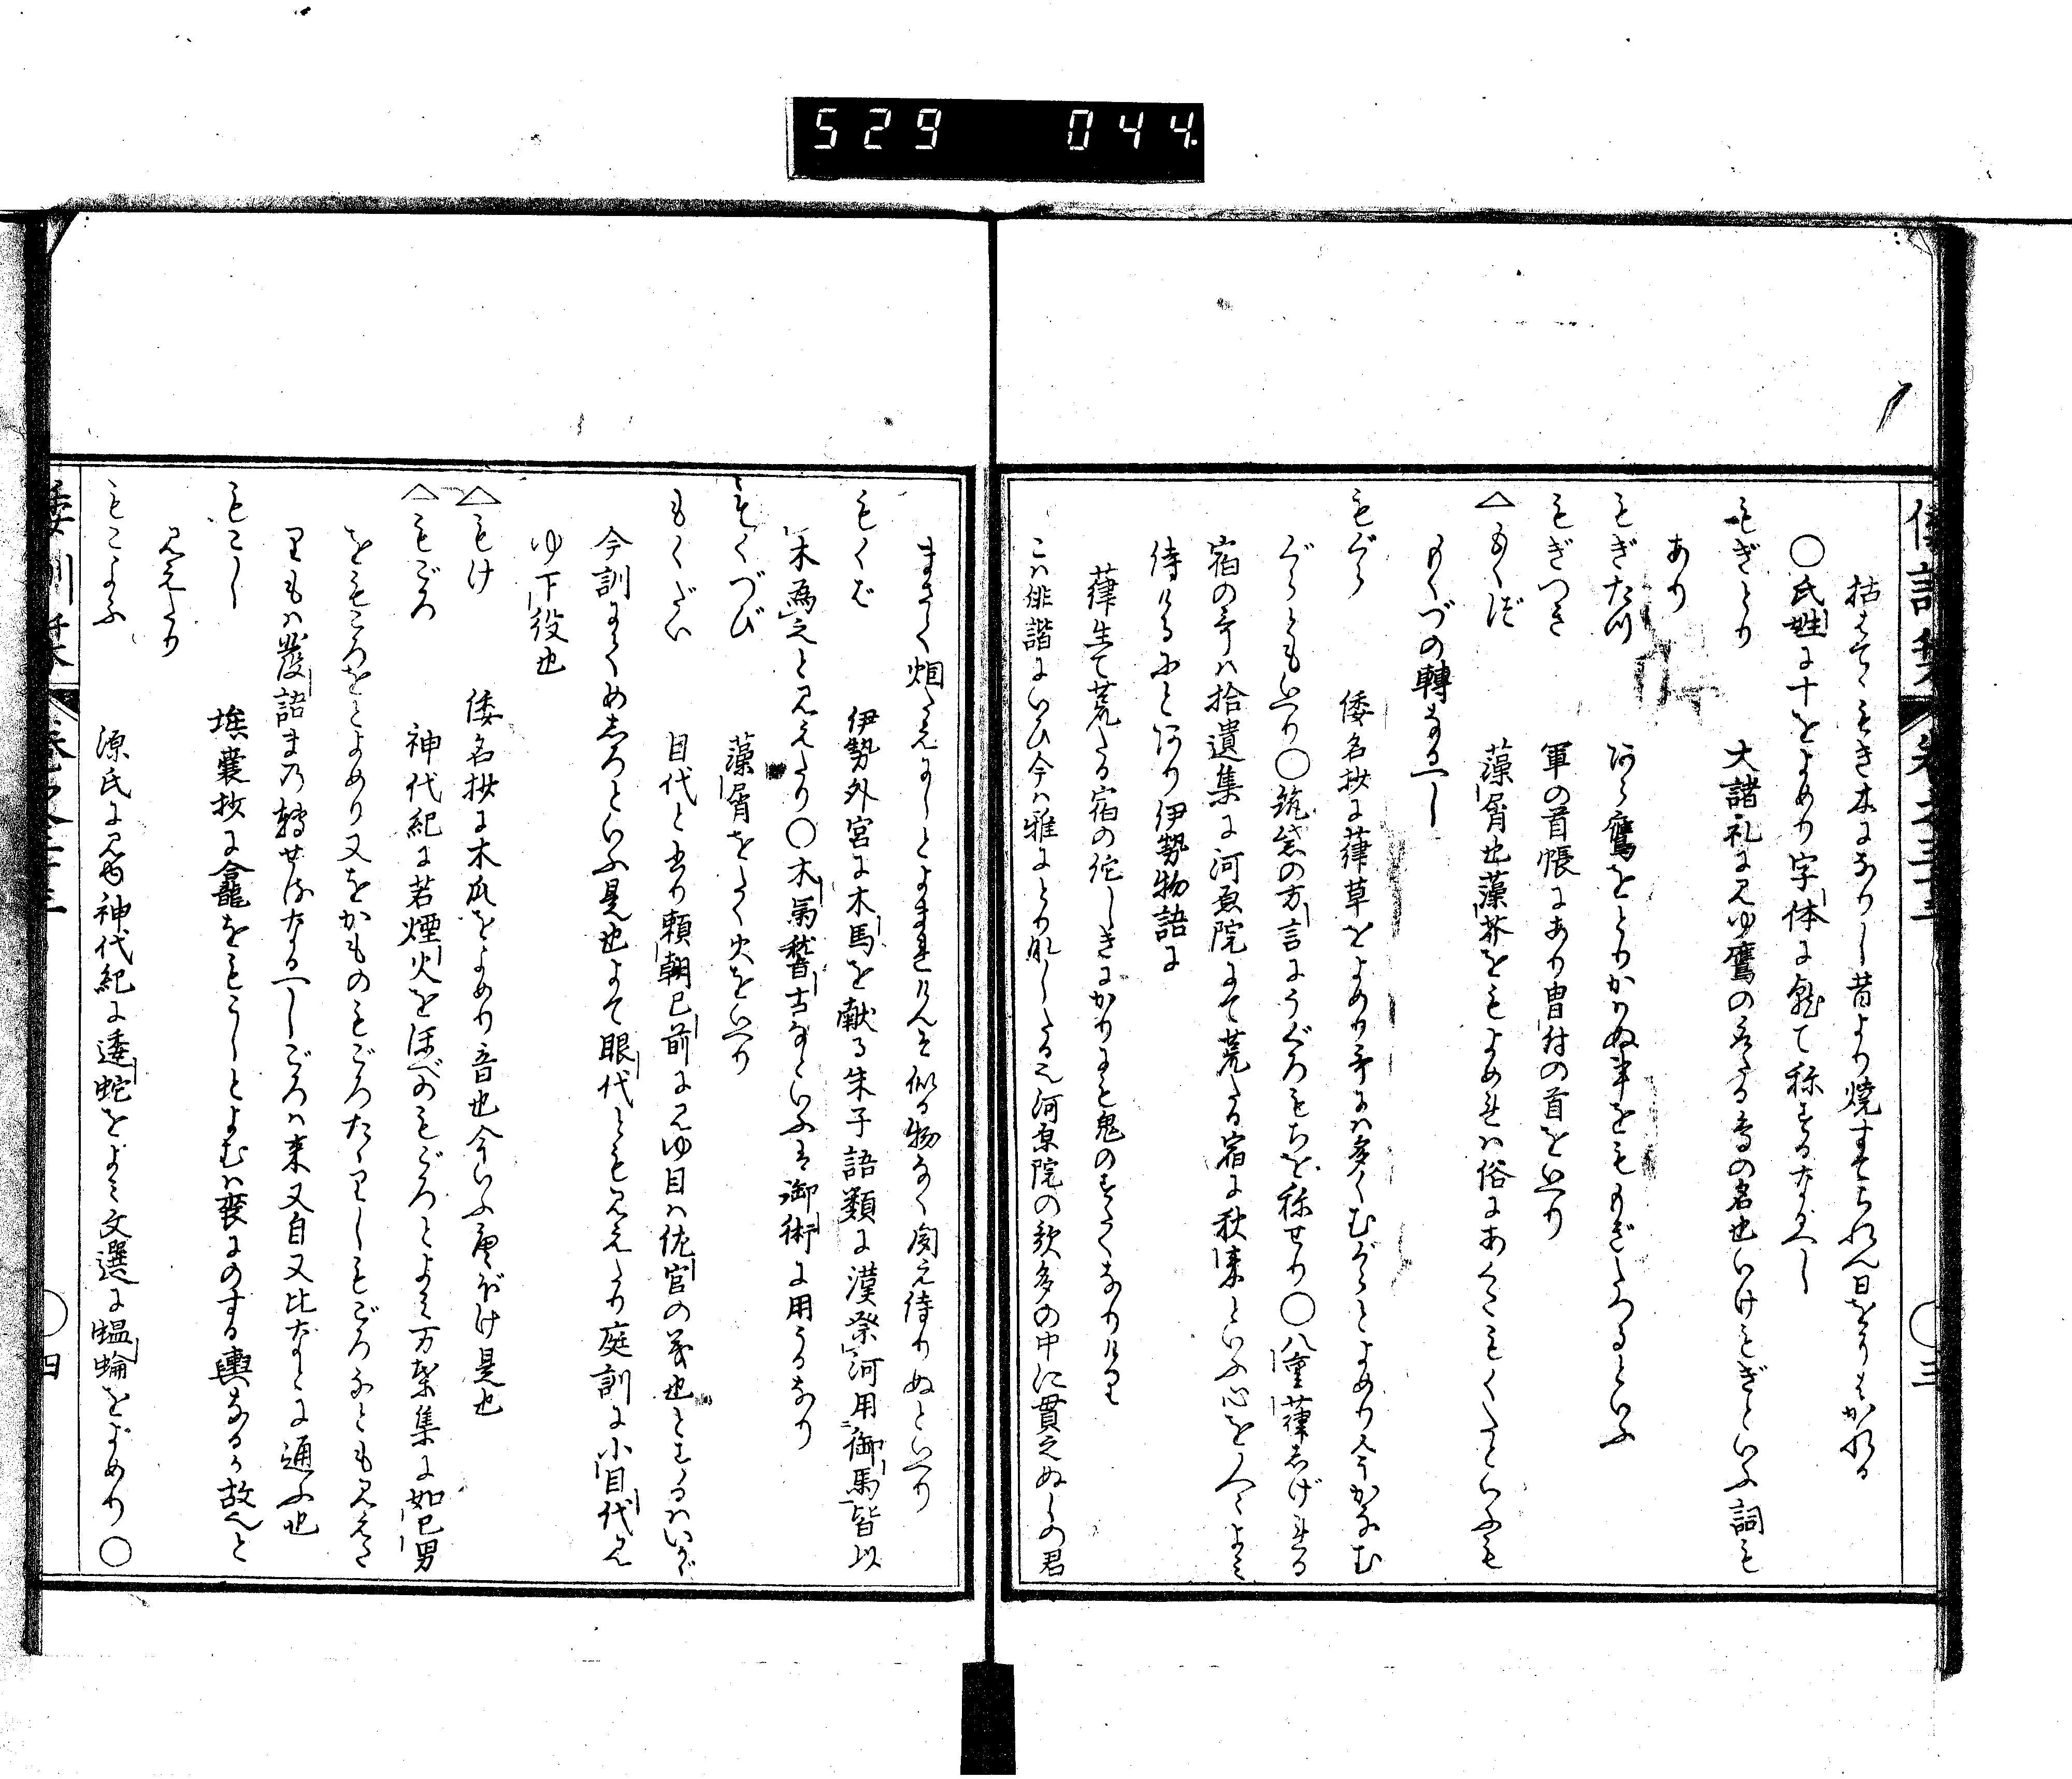 529 044
倭訓栞 巻之三十三 ○三
枯はてゝもき木になりし昔より焼すてられん日をうらはかれる
○氏姓に十をよめり字体に就て称するなるへし
もぎとり 大諸礼に見ゆ鷹の 鳥の名也いけもぎといふ詞も
あり
もぎたつ あら鷹をとりかはぬ事をもゝぎたつるといふ
もぎつき 軍の首帳にあり冑付の首をいへり
△もくず 藻屑也藻芥をもよめれは俗にあくたもくたといふも
もくづの轉なるへし
もぐら 倭名抄に葎草をよめり歌には多くむぐらとよめり今かなむ
ぐらともいへり○筑紫の方言にうぐろもちを称せり○八重葎しげれる
宿の哥は拾遺集に河原院にて荒たる宿に秋来といふ心を人々よみ
侍けるにとあり伊勢物語に
葎生て荒たる宿の佗しきはかりにも鬼のすたくなりけり
こは俳諧にいひ今は雅にとり成したる也河原院の歌多の中に貫之ぬしの君
まさて烟たえにしとよまれけんそ似る物なく聞え侍りぬといへり
もくば 伊勢外宮に木馬を献る朱子語類に漢祭河用御馬皆以
木爲之と見えたり○木馬稽古なといふは御術に用うるなり
もくづび 藻屑をたく火をいへり
もくだい 目代と書り頼朝已前に見ゆ目は佐官の義也とするはいかゞ
今訓にてめしろといふ是也よて眼代とも見えたり庭訓に小目代見
ゆ下役也
△もけ 倭名抄に木瓜をよめり音也今いふ唐ぼけ是也
△もごろ 神代紀に若煙火をほべのもごろとよみ万葉集に如已男
をもころをとよめり又をかものもごろたゝりしもごろなとも見えた
りもは發語まの轉せるなるへしごろは来又自又比なとに通ふ也
もこし 埃嚢抄に合龍をもこしとよむは裳にのする輿なるか故也と
見えたり
もこよふ 源氏に見ゆ神代紀に逶蛇をよみ文選に蝹蜦をよめり○
倭訓栞 巻之三十三 ○四